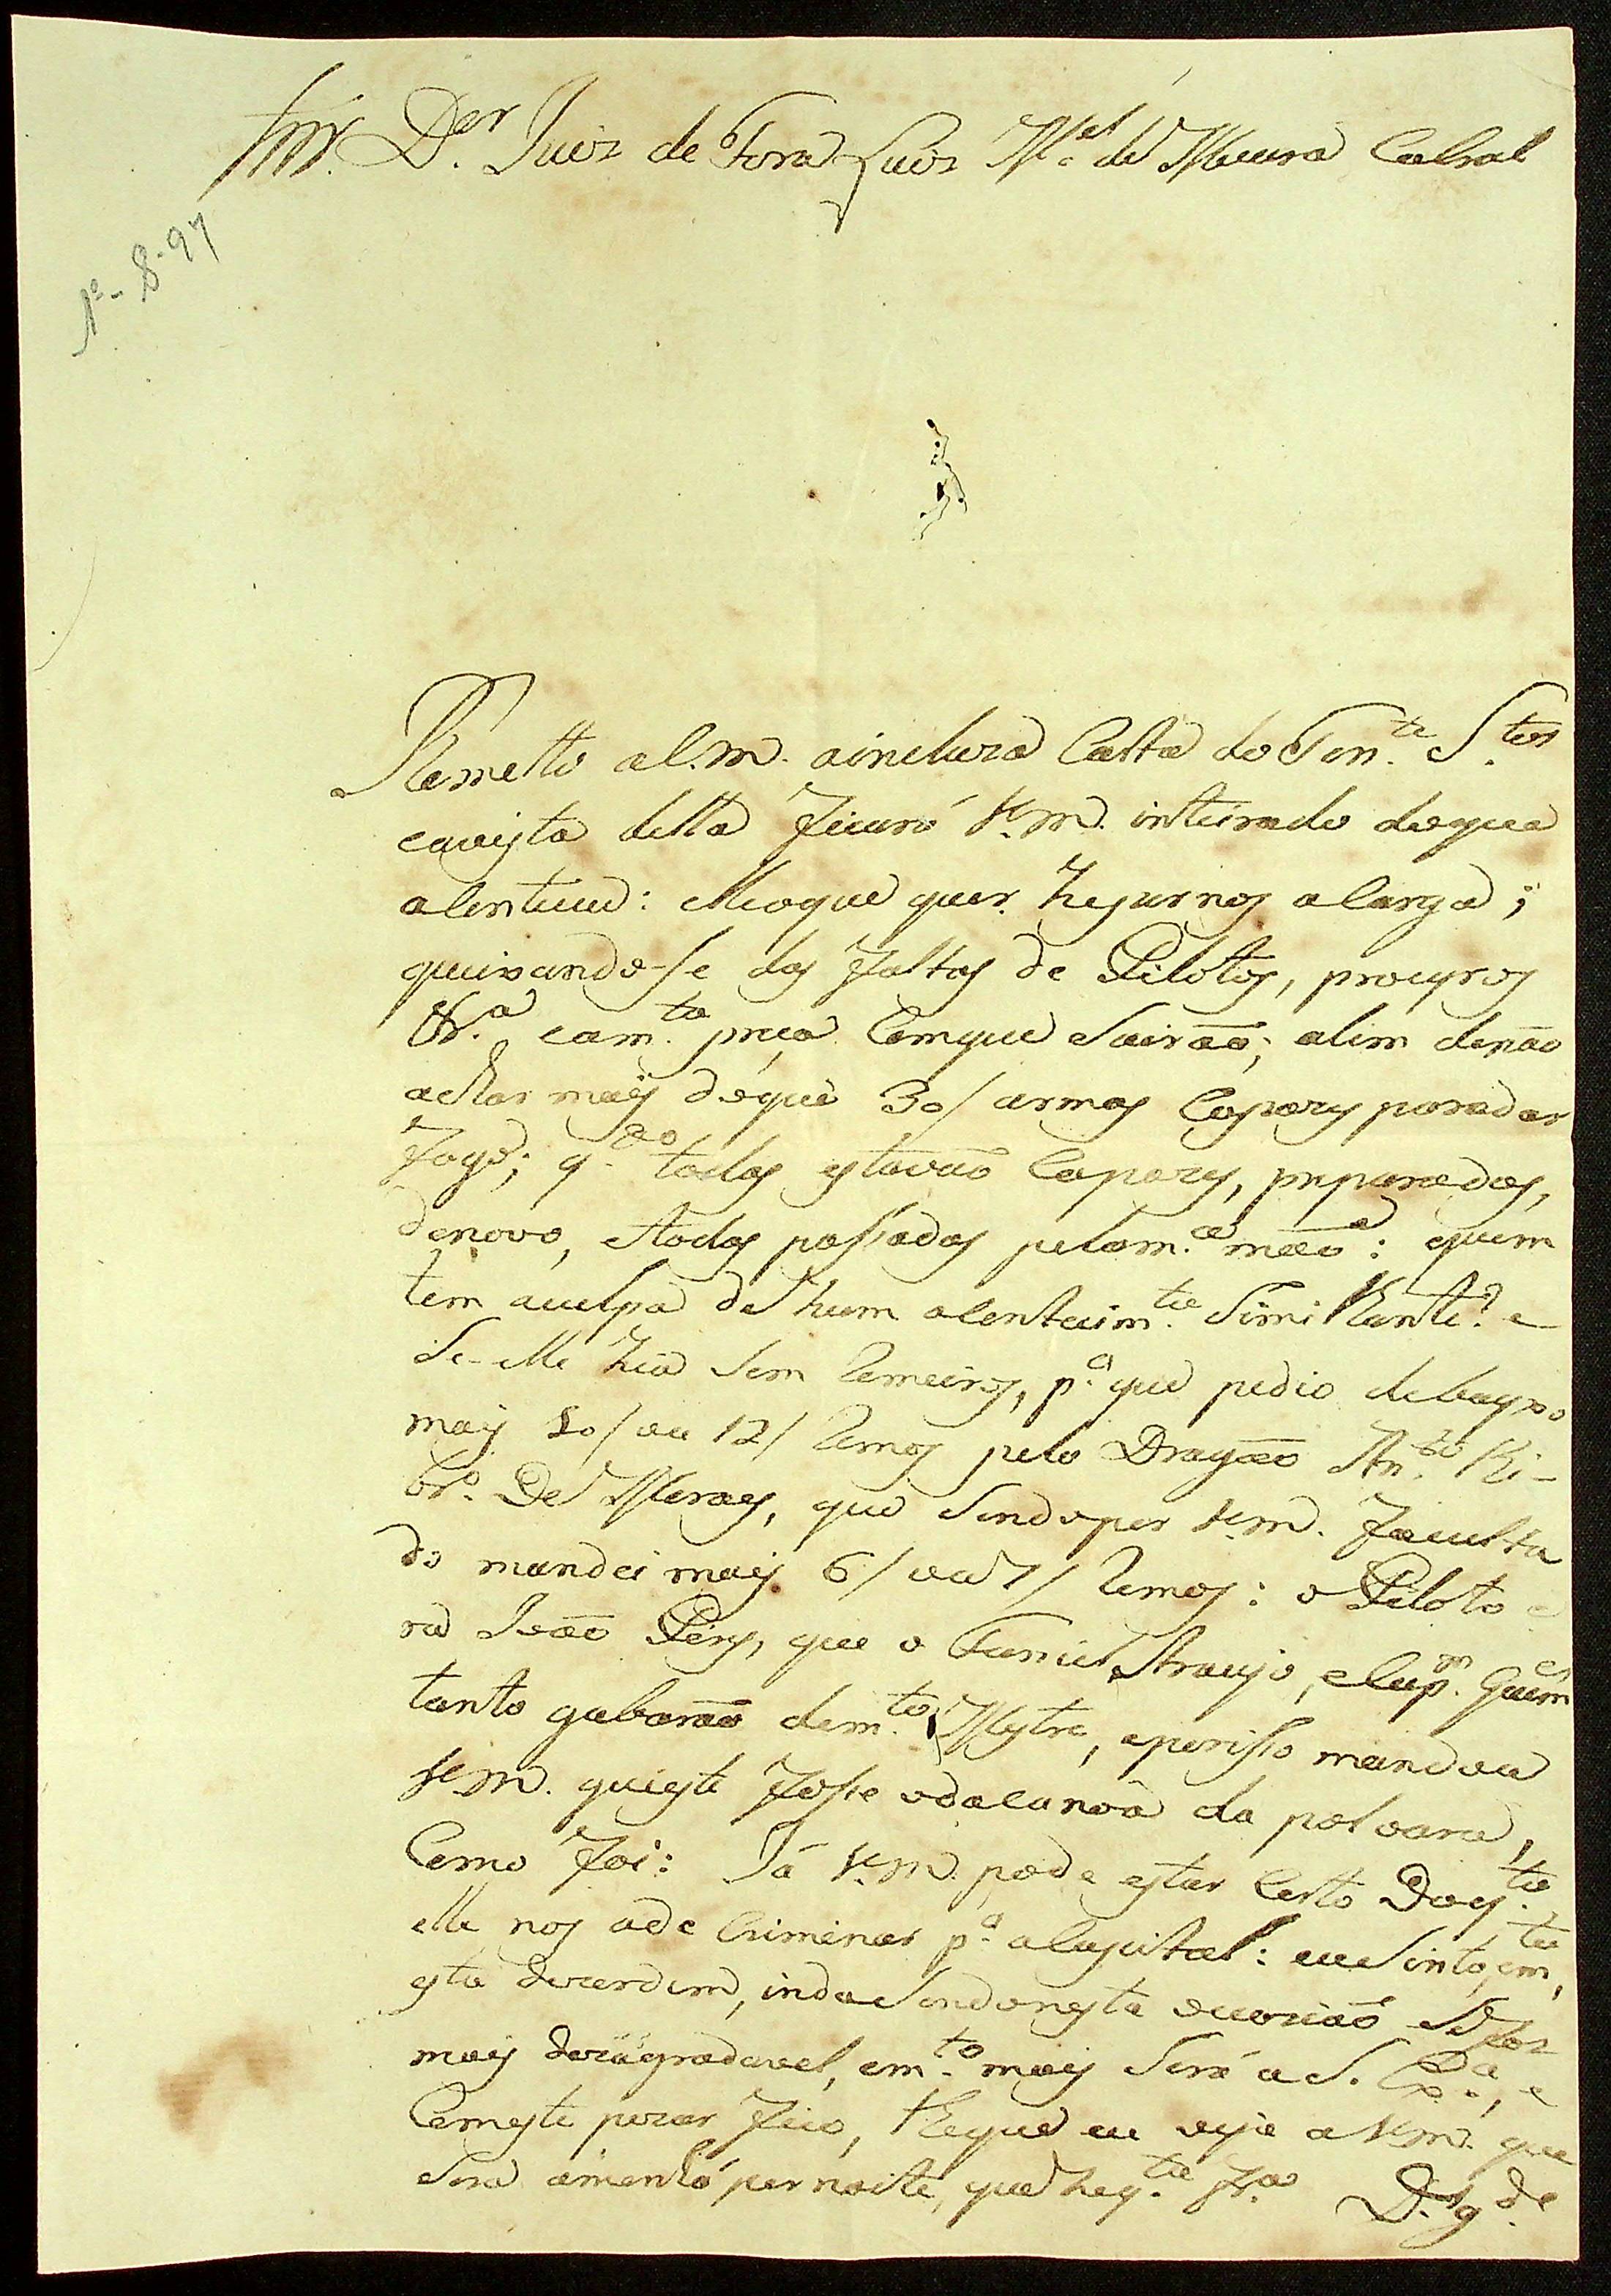 Snr. D.or Juiz de Fora Luiz M.el de Moura Cabral
Nº- 8-97
Remetto a V.m. aincluza Carta do Ten.te S.tos
eavista della ficará V.m. inteirado doque
alentrou: elleoque quer. hé furnos alarga;
queixando-se das faltas de Pilotos, proeyros
fr.a eam.ta preça Comque Sairaõ; alem denão
achar mais déque 30/ armas Capazes paradar
fogo; q.do todas estavaõ Capazes, preparadas,
denovo, etodas passadas pelam.a maõ: quem
tem aculpa de hum alentecim.to Similhante? e
Se elle hia Sem Remeiros, p.a que pedio debayxo
mais 10/ ou 12/ Remos pelo Dragaõ An.to Ri-
br.o De Moraes, que Sendopor V.m. faculta
do mandei mais 6/ ou 7/ Remos: o Piloto e
ra Joaõ Pires, que o Furriel Araujo, eCap.m Guim.es
tanto gabaraõ dem.to Mestre, eporisso mandou
V.m. queeste fosse odacanoa da polvora,
Como foi: Já V.m. pode estar Certo Dog.te
elle nos ade Criminar p.a aCapital: eu Sinto, em.to
esta dezordem, inda Sendonesta ocoziaõ Sefaz
mais dezagradavel, em.to mais Será a S. Ex.a, e
Comeste pezar fico, the que eu veja a V.m. que
Será amenhá pornoite, que hey.te fr.a D.s g.de